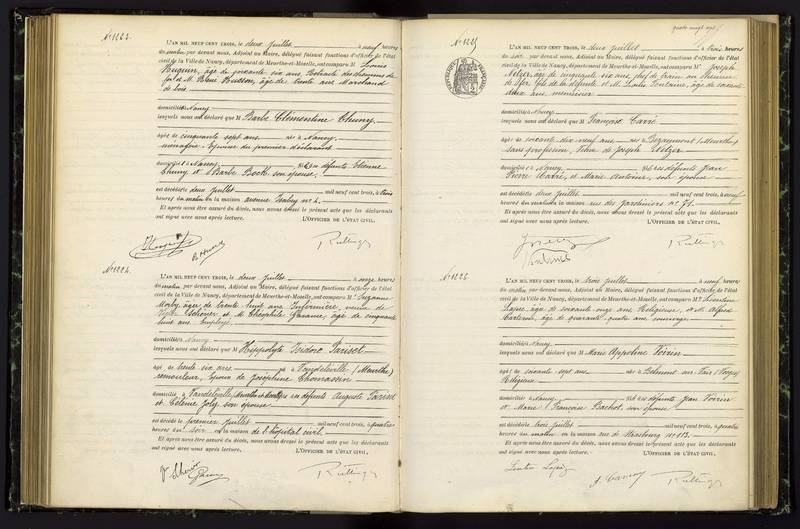 N° 1223.
L'AN MIL NEUF CENT TROIS, le deux Juillet à neuf heures
du matin par devant nous, Adjoint au Maire, délégué faisant fonctions d'officier de l'état
civil de la Ville de Nancy, département de Meurthe-et-Moselle, ont comparu M Louis
âgé de soixante six ans, Retraité des chemins de
fer et M. René Husson, âgé de trente ans Marchand
de bois
domiciliés à Nancy
lesquels nous ont déclaré que M Barbe Clémentine
âgée de cinquante sept ans née à Nancy,
ménagère épouse du premier déclarant
domiciliée à Nancy fille des défunts Etienne
et Barbe Bock son épouse,
est décédée deux Juillet mil neuf cent trois, à trois
heures du matin en la maison avenue n° 4.
Et après nous être assuré du décès, nous avons dressé le présent acte que les déclarants
ont signé avec nous après lecture. L'OFFICIER DE L'ÉTAT CIVIL,
N° 1224.
L'AN MIL NEUF CENT TROIS, le deux Juillet à onze heures
du matin par devant nous, Adjoint au Maire, délégué faisant fonctions d'officier de l'état
civil de la Ville de Nancy, département de Meurthe-et-Moselle, ont comparu M Suzanne
âgée de trente huit ans Infirmière, veuve de
et M. Théophile âgé de cinquante
huit ans Employé,
domiciliés à Nancy
lesquels nous ont déclaré que M Hippolyte Isidore Parisot
âgé de trente six ans né à Vandeléville (Meurthe)
rémouleur, époux de Joséphine Thomassin
domicilié à Vandeléville (Meurthe et Moselle) fils des défunts Auguste Parisot
et Célénie Joly, son épouse
est décédé le premier Juillet mil neuf cent trois, à quatre
heures du soir en la maison de l'hôpital civil.
Et après nous être assuré du décès, nous avons dressé le présent acte que les déclarants
ont signé avec nous après lecture. L'OFFICIER DE L'ÉTAT CIVIL,
N° 1225
L'AN MIL NEUF CENT TROIS, le deux Juillet à trois heures
du soir par devant nous, Adjoint au Maire, délégué faisant fonctions d'officier de l'état
civil de la Ville de Nancy, département de Meurthe-et-Moselle, ont comparu M Joseph
âgé de cinquante six ans, chef de train au chemin
de fer, fils de la défunte et M. Louis Fontaine, âgé de soixante
deux ans, menuisier
domiciliés à Nancy
lesquels nous ont déclaré que M Françoise Carré
âgée de soixante dix neuf ans née à Bezaumont (Meurthe)
sans profession, Veuve de Joseph
domiciliée à Nancy fille des défunts Jean
Pierre Carré, et Marie Antoine, son épouse
est décédée deux Juillet mil neuf cent trois, à neuf
heures du matin en la maison rue des Jardiniers n° 71.
Et après nous être assuré du décès, nous avons dressé le présent acte que les déclarants
ont signé avec nous après lecture. L'OFFICIER DE L'ÉTAT CIVIL,
L'AN MIL NEUF CENT TROIS, le trois Juillet à neuf heures
du matin par devant nous, Adjoint au Maire, délégué faisant fonctions d'officier de l'état
civil de la Ville de Nancy, département de Meurthe-et-Moselle, ont comparu M Léontine
âgée de soixante onze ans Religieuse, et M. Alfred
âgé de quarante quatre ans concierge
domiciliés à Nancy
lesquels nous ont déclaré que M Marie Appoline Voirin
âgée de soixante sept ans née à Belmont (Vosges)
Religieuse
domiciliée à Nancy fille des défunts Jean Voirin
et Marie Françoise Bachot, son épouse
est décédée trois Juillet mil neuf cent trois, à quatre
heures du matin en la maison rue de Strasbourg n° 113.
Et après nous être assuré du décès, nous avons dressé le présent acte que les déclarants
ont signé avec nous après lecture. L'OFFICIER DE L'ÉTAT CIVIL,